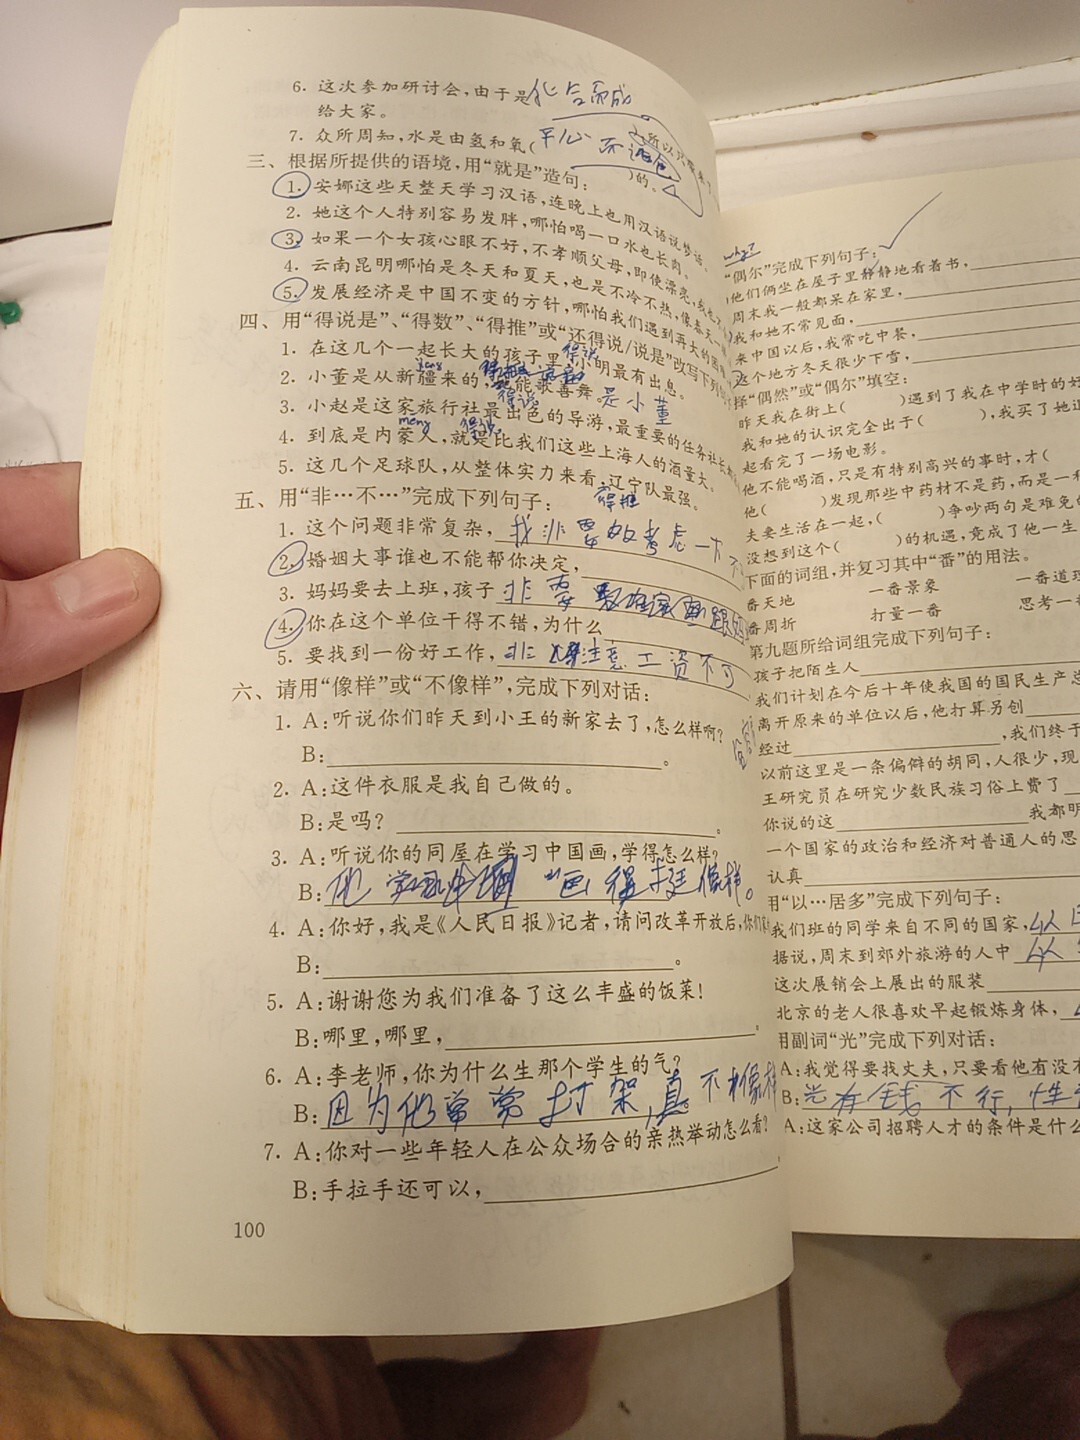 6. 这次参加研讨会,由于是化合而成
给大家。
7. 众所周知,水是由氢和氧( 平心
)的。
三、根据所提供的语境,用“就是”造句:
1. 安娜这些天整天学习汉语,连晚上也用汉语说梦话。
2. 她这个人特别容易发胖,哪怕喝一口水也长肉。
3. 如果一个女孩心眼不好,不孝顺父母,即使漂亮,
4. 云南昆明哪怕是冬天和夏天,也是不冷不热,像春天一
5. 发展经济是中国不变的方针,哪怕我们遇到再大的困
四、用“得说是”、“得数”、“得推”或“还得说/说是”改写下列句
得说
1. 在这几个一起长大的孩子里,小明最有出息。
jiang
2. 小董是从新疆来的,能歌善舞。是小董
得说
3. 小赵是这家旅行社最出色的导游,最重要的任务社长
meng 得说
4. 到底是内蒙人,就是比我们这些上海人的酒量大。
5. 这几个足球队,从整体实力来看,辽宁队最强。
得推
五、用“非…不…”完成下列句子:
1. 这个问题非常复杂,我非要的考虑一下不
2. 婚姻大事谁也不能帮你决定,
3. 妈妈要去上班,孩子非要跟
4. 你在这个单位干得不错,为什么
5. 要找到一份好工作,非注意工资不可
六、请用“像样”或“不像样”,完成下列对话:
1. A:听说你们昨天到小王的新家去了,怎么样啊?
B: 。
2. A:这件衣服是我自己做的。
B:是吗? 。
3. A:听说你的同屋在学习中国画,学得怎么样?
B:他学 画得挺像样。
4. A:你好,我是《人民日报》记者,请问改革开放后,你们
B: 。
5. A:谢谢您为我们准备了这么丰盛的饭菜!
B:哪里,哪里,
6. A:李老师,你为什么生那个学生的气?
B:因为他常常打架,真不像样
7. A:你对一些年轻人在公众场合的亲热举动怎么看?
B:手拉手还可以,
100
why?
“偶尔”完成下列句子:
他们俩坐在屋子里静静地看着书,
周末我一般都呆在家里,
我和她不常见面,
来中国以后,我常吃中餐,
这个地方冬天很少下雪,
择“偶然”或“偶尔”填空:
昨天我在街上( )遇到了我在中学时的好
我和她的认识完全出于( ),我买了她
起看完了一场电影。
他不能喝酒,只是有特别高兴的事时,才(
他( )发现那些中药材不是药,而是一
夫妻生活在一起,( )争吵两句是难免
没想到这个( )的机遇,竟成了他一生
下面的词组,并复习其中“番”的用法。
番天地 一番景象 一番道理
番周折 打量一番 思考一番
第九题所给词组完成下列句子:
孩子把陌生人
我们计划在今后十年使我国的国民生产总
离开原来的单位以后,他打算另创
经过 ,我们终于
以前这里是一条偏僻的胡同,人很少,现
王研究员在研究少数民族习俗上费了
你说的这 我都明
一个国家的政治和经济对普通人的思
认真
用“以…居多”完成下列句子:
我们班的同学来自不同的国家,以
据说,周末到郊外旅游的人中 以
这次展销会上展出的服装
北京的老人很喜欢早起锻炼身体,
用副词“光”完成下列对话:
A:我觉得要找丈夫,只要看他有没有
B:光有钱不行,性
A:这家公司招聘人才的条件是什么